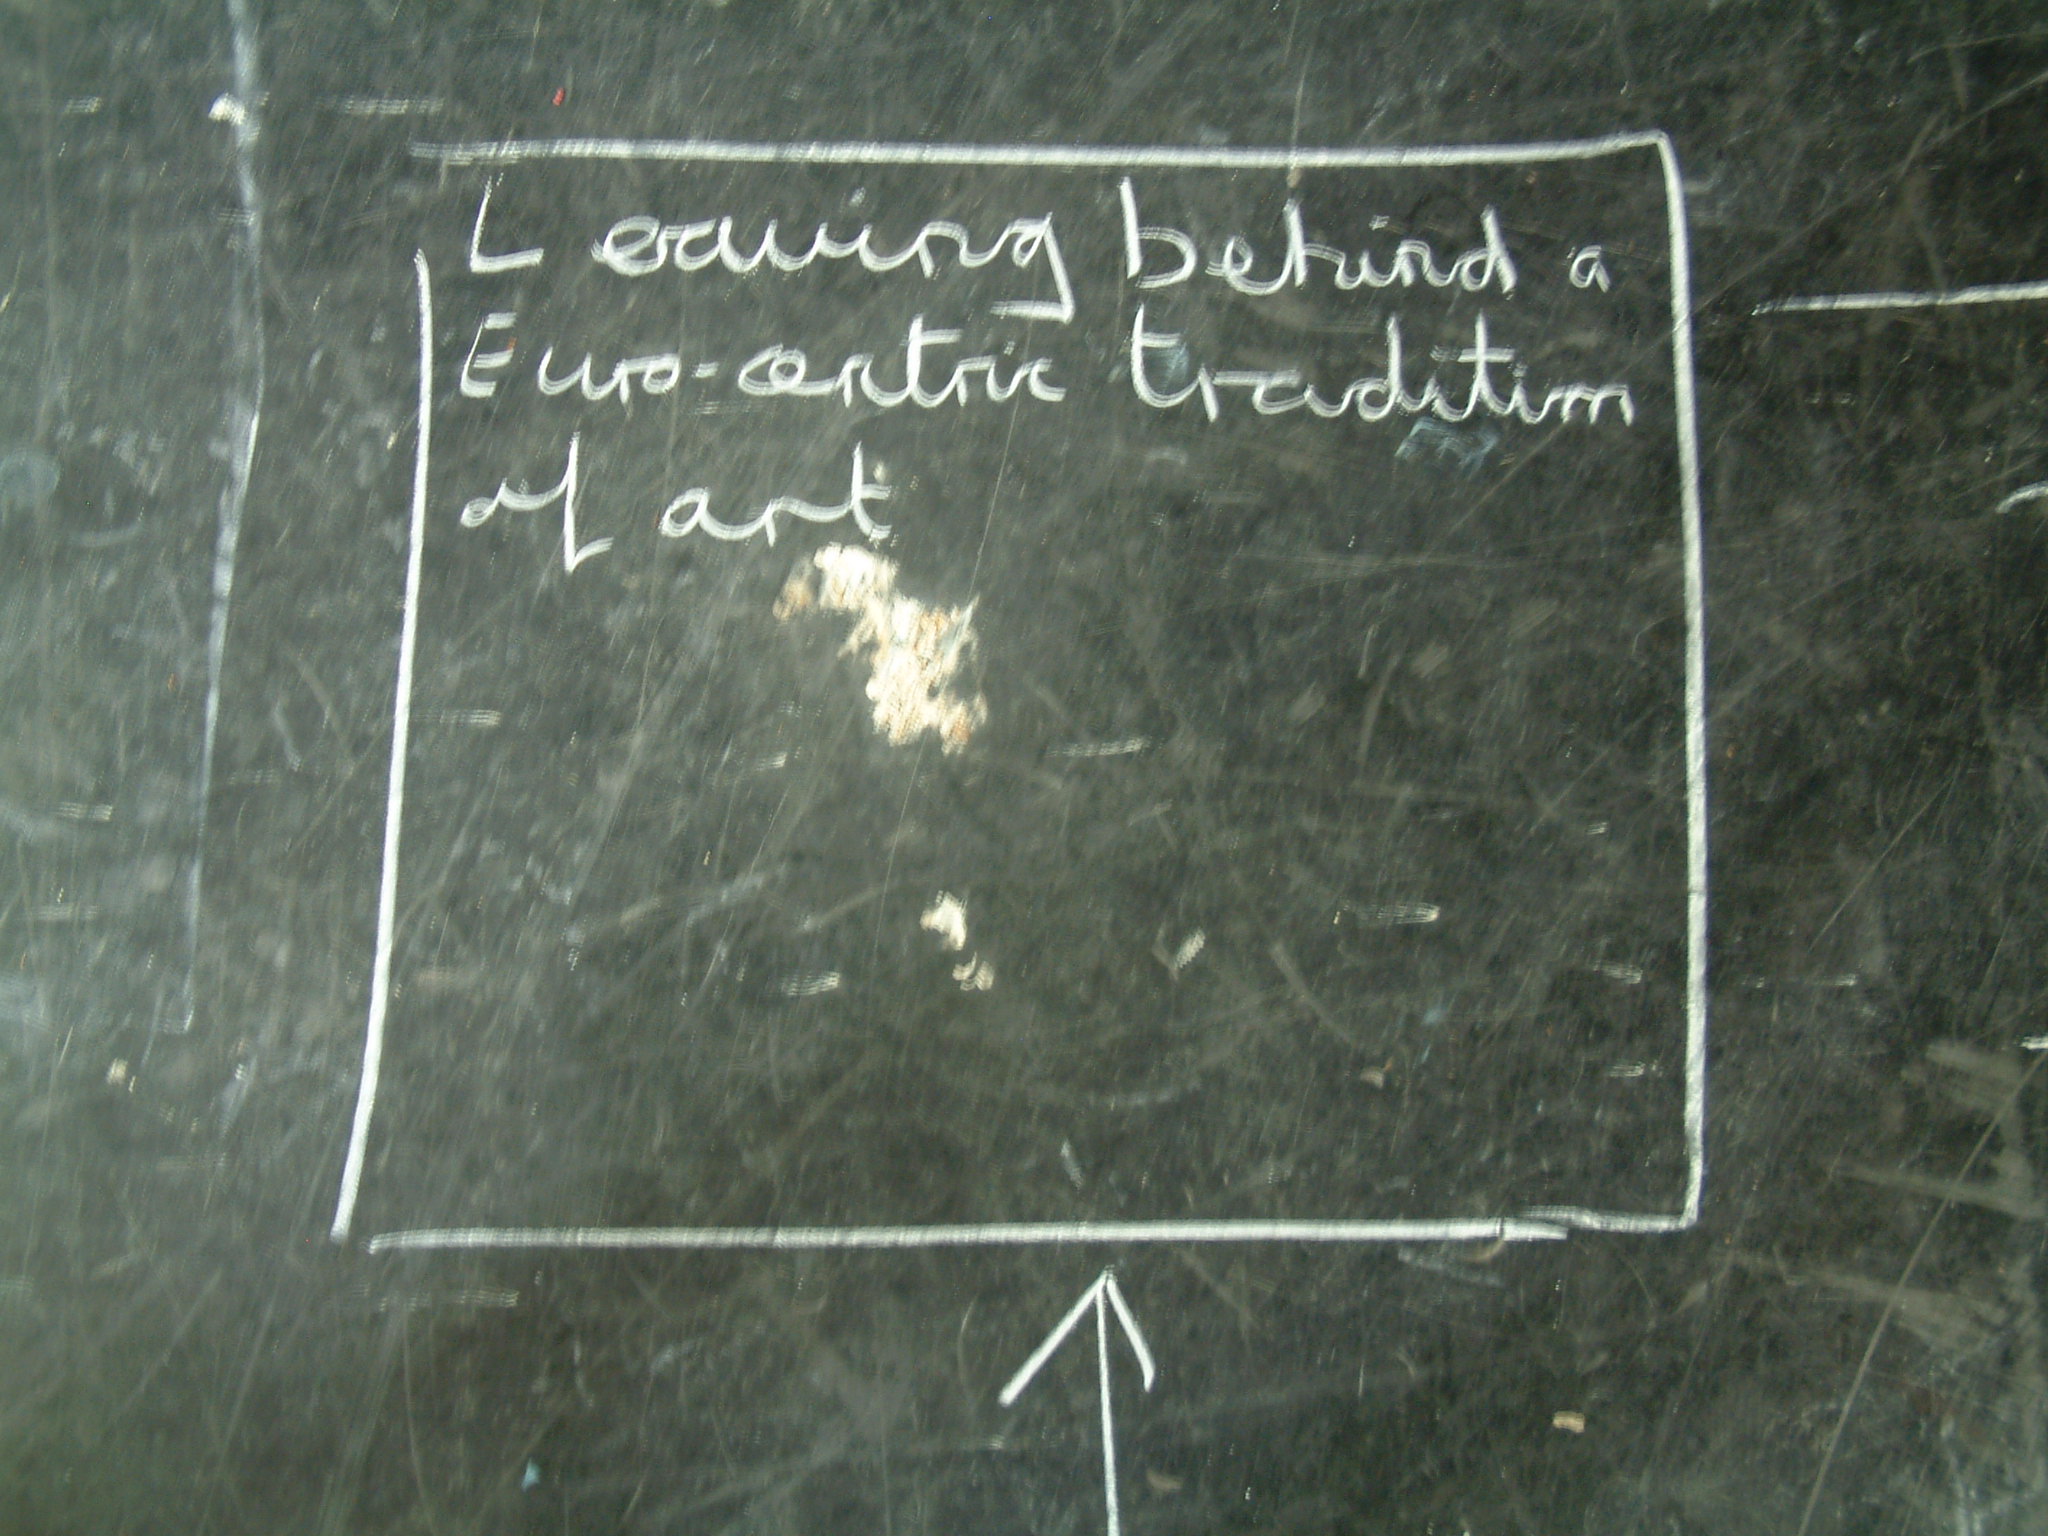 Leaving behind a
Euro-centric tradition
of art